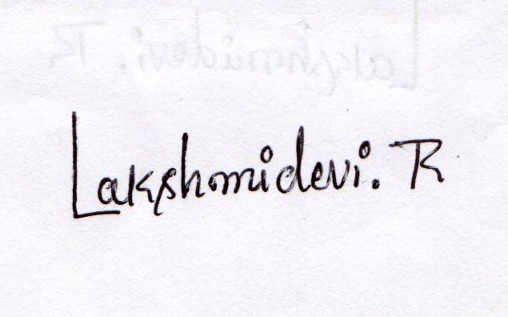 Lakshmidevi. R